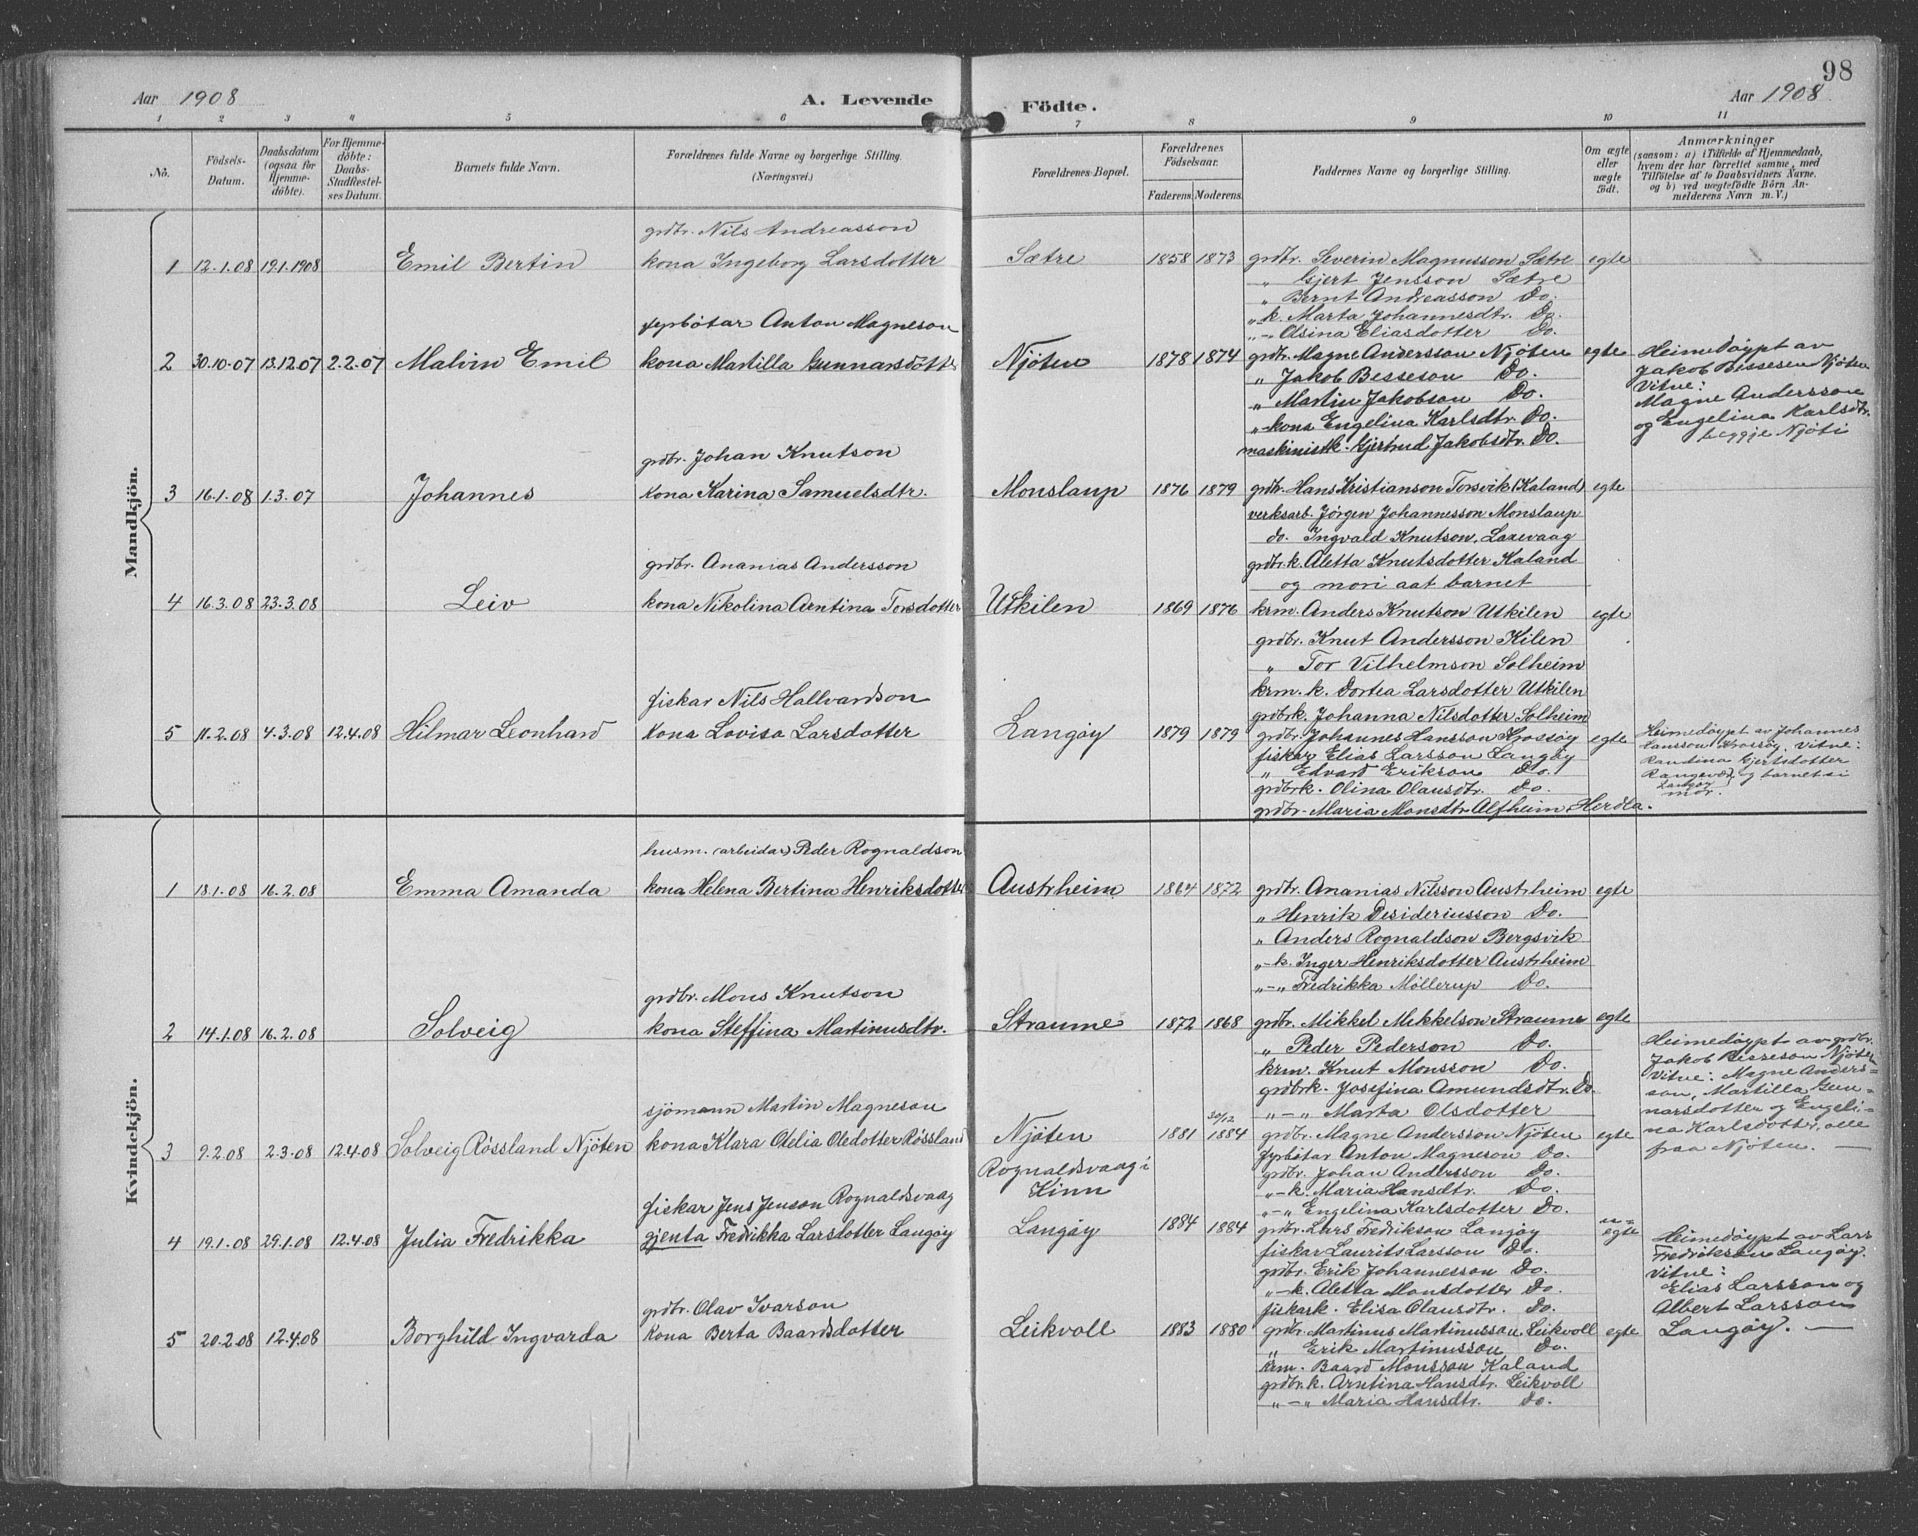 98
Aar 1908 A. Levende Födte. Aar 1908
1 2 3 4 5 6 7 8 9 10 11
No. Födsels-Datum. Daabsdatum (ogsaa for Hjemmedöbte). For Hjemmedöbte: Daabs-Stadfestelses Datum. Barnets fulde Navn. Forældrenes fulde Navne og borgerlige Stilling. (Næringsvei.) Forældrenes Bopæl. Forældrenes Födselsaar. Faderens. Moderens. Faddernes Navne og borgerlige Stilling. Om ægte eller uægte födt. Anmærkninger (saasom: a) i Tilfælde af Hjemmedaab, hvem der har forrettet samme, med Tilföielse af to Daabsvidners Navne. og b) ved uægtefödte Börn Anmelderens Navn m. V.)
Mandkjön.
grdbr. Nils Andreasson
1 12.1.08 19.1.1908 Emil Bertin kona Ingeborg Larsdotter Sætre 1858 1873 grdbr. Severin Magnusson Sætre egte
„ Gjert Jensson Sætre
„ Bernt Andreasson Do.
„ k. Marta Johannesdtr. Do.
„ - Olsina Eliasdotter Do.
fyrbötar Anton Magneson
2 30.10.07 13.12.07 2.2.07 Malvin Emil kona Martilla Gunnarsdötter Njöten 1878 1874 grdbr. Magne Andersson Njöten egte
„ Jakob Besseson Do.
„ Martin Jakobson Do.
„ - kona Engelina Karlsdtr. Do.
maskinistk. Gjertrud Jakobsdtr. Do.
Heimedöypt av
Jakob Bessesen Njöten
Vitne:
Magne Andersson
og Engelina Karlsdtr.
beggje Njöti
grdbr. Johan Knutson
3 16.1.08 1.3.07 Johannes kona Karina Samuelsdtr. Monslaup 1876 1879 grdbr. Hans Kristianson Torsvik (Kaland) egte
verksarb. Jörgen Johannesson Monslaup
do. Ingvald Knutson, Laxevaag
grdbr. k. Aletta Knutsdotter Kaland
og mori aat barnet
grdbr. Ananias Andersson
4 16.3.08 23.3.08 Leiv kona Nikolina Arntina Torsdotter Utkilen 1869 1876 krm. Anders Knutson Utkilen egte
grdbr. Knut Andersson Kilen
„ Tor Vilhelmson Solheim
krm. k. Dortea Larsdotter Utkilen
grdbrk. Johanna Nilsdotter Solheim
fiskar Nils Hallvardson
5 11.2.08 4.3.08 12.4.08 Hilmar Leonhard kona Lovisa Larsdotter Langöy 1879 1879 grdbr. Johannes Hansson Krossöy egte
fiskar Elias Larsson Langöy
„ Edvard Erikson Do.
grdbrk. Olina Olausdtr. Do.
grdbr. Maria Monsdtr. Alfheim, Herdla.
Heimedöypt av Johannes
Hansson Krossöy. Vitne:
Randina Gjertsdotter
Langöy og barnet si
mor.
Kvindekjön.
husm. (arbeidar) Peder Rognaldson
1 18.1.08 16.2.08 Emma Amanda kona Helena Bertina Henriksdotter Austrheim 1864 1872 grdbr. Ananias Nilsson Austrheim egte
„ Henrik Desideriusson Do.
„ Anders Rognaldson Bergsvik
„ - k. Inger Henriksdotter Austrheim
„ - „ Fredrikka Möllerup Do.
grdbr. Mons Knutson
2 14.1.08 16.2.08 Solveig kona Steffina Martinusdtr. Straume 1872 1868 grdbr. Mikkel Mikkelson Straume egte
„ Peder Pederson Do.
krm. Knut Monsson Do.
grdbrk. Josefina Amundsdtr. Do.
„ - „ Marta Olsdotter
sjömann Martin Magneson
3 9.2.08 2.3.08 12.4.08 Solveig Rössland Njöten kona Klara Otelia Oledotter Rössland Njöten 1881 30/12 1884 grdbr. Magne Andersson Njöten egte
fyrbötar Anton Magneson Do.
grdbr. Johan Andersson Do.
„ - k. Maria Hansdtr. Do.
„ - „ Engelina Karlsdotter Do.
Heimedöypt av grdbr.
Jakob Besseson Njöten
Vitne: Magne Anders=
son, Martilla Gun=
narsdotter og Engeli=
na Karlsdotter, alle
fraa Njöten. —
Rognaldsvaag i
Kinn
fiskar Jens Jenson Rognaldsvaag
4 19.1.08 29.1.08 12.4.08 Julia Fredrikka gjenta Fredrikka Larsdotter Langöy Langöy 1884 1884 grdbr. Lars Fredrikson Langöy u=egte
fiskar Laurits Larsson Do.
grdbr. Erik Johannesson Do.
„ - k. Aletta Monsdotter Do.
fiskark. Elisa Olausdtr. Do.
Heimedöypt av Lars
Fredrikson Langöy.
Vitne:
Elias Larsson og
Albert Larsson
Langöy. —
grdbr. Olav Ivarson
5 20.2.08 12.4.08 Borghild Ingvarda kona Berta Baardsdotter Leikvoll 1883 1880 grdbr. Martinus Martinusson Leikvoll egte
„ Erik Martinusson Do.
krm. Baard Monsson Kaland
grdbr. k. Arntina Hansdtr. Leikvoll
„ - „ Maria Hansdtr. Do.